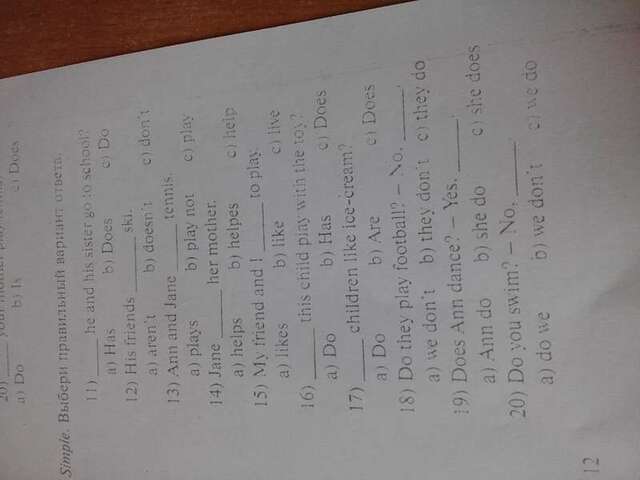 20)
a) Do b) Is c) Does
Simple. Выбери правильный вариант ответа.
11) ______ he and his sister go to school?
a) Has b) Does c) Do
12) His friends ______ ski.
a) aren't b) doesn't c) don't
13) Ann and Jane ______ tennis.
a) plays b) play not c) play
14) Jane ______ her mother.
a) helps b) helpes c) help
15) My friend and I ______ to play.
a) likes b) like c) live
16) ______ this child play with the toy?
a) Do b) Has c) Does
17) ______ children like ice-cream?
a) Do b) Are c) Does
18) Do they play football? – No, ______.
a) we don't b) they don't c) they do
19) Does Ann dance? – Yes, ______.
a) Ann do b) she do c) she does
20) Do you swim? – No, ______.
a) do we b) we don't c) we do
12